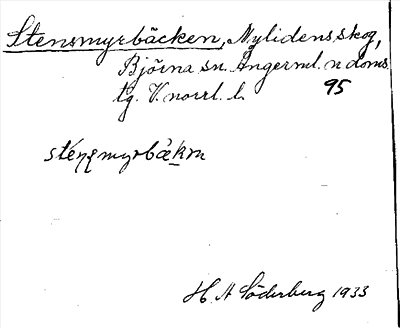 Stensmyrbäcken, Nylidens skog,
Björna sn. Ångerml. n doms.
tg. V. norrl. l. 95
sténsmyrbækm
H. A Söderberg 1933